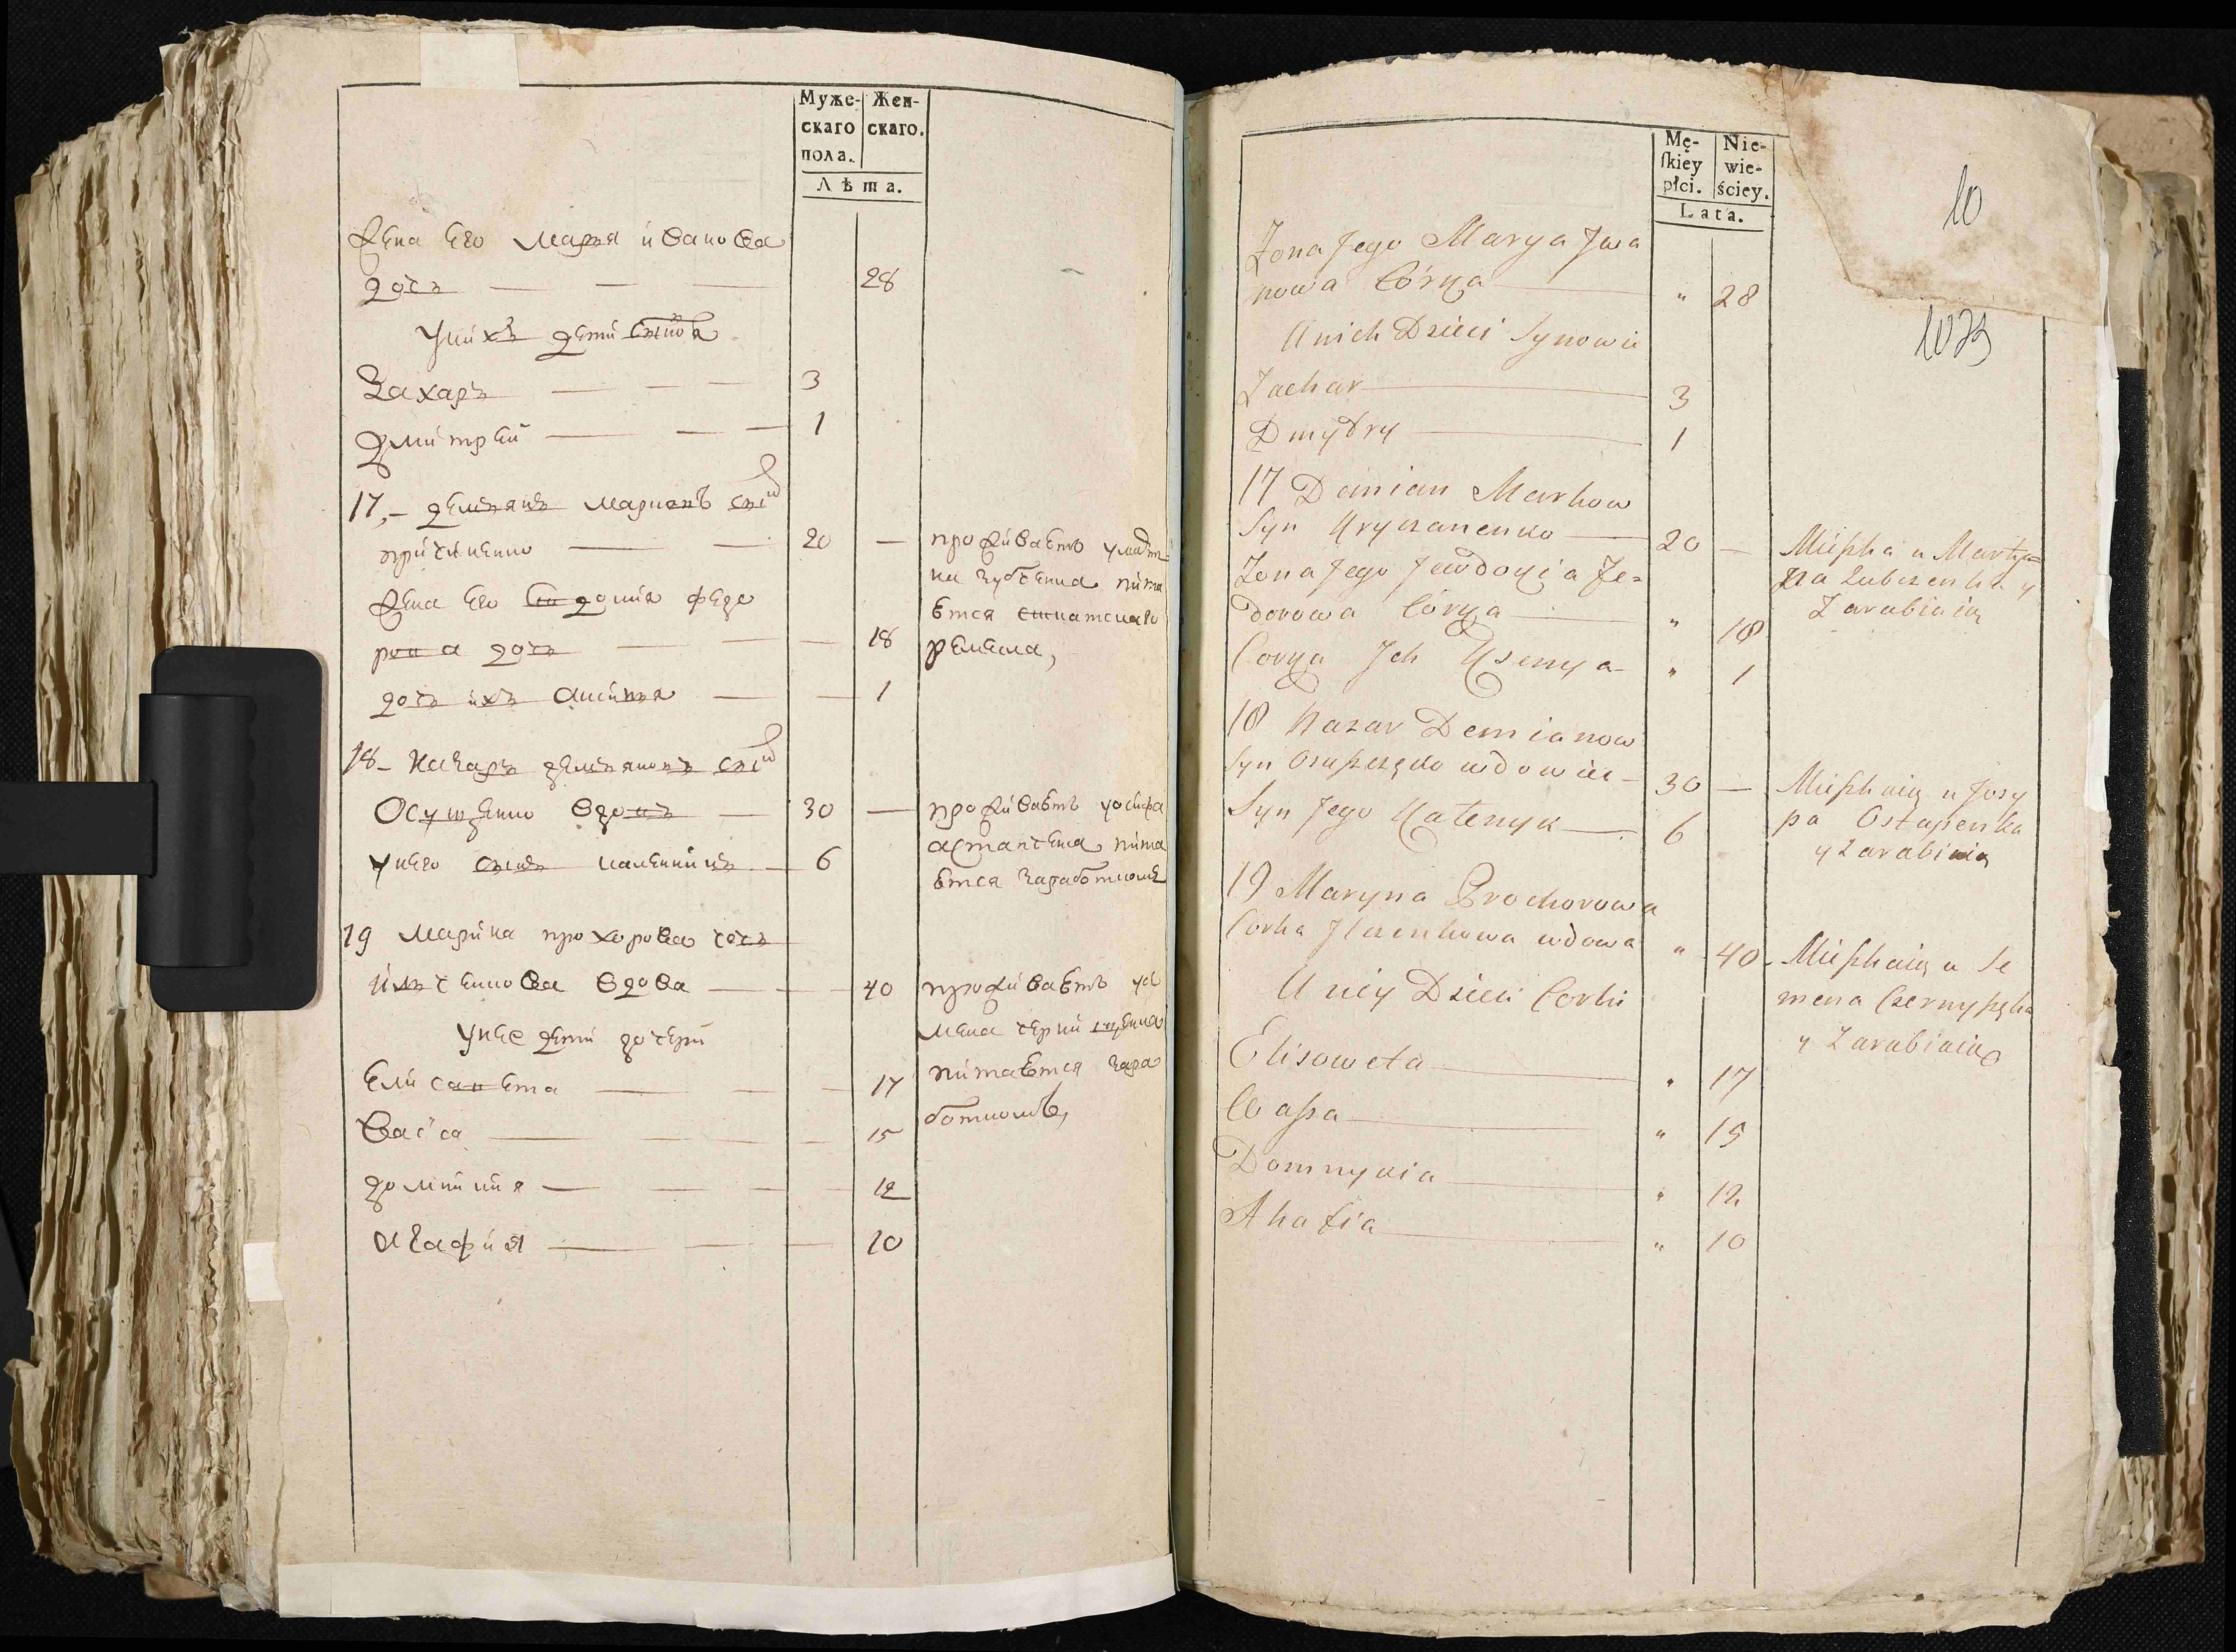 Муже-
скаго
пола.
Жен-
скаго.
Лѣта.
Жена Его Марья ивановa
дочь — — — 28
Уних дети Сыновя
Захаръ — — — 3
Дмитрей — — — 1
17,- Демьянъ Марковъ Сынъ
Гриченко — — 20 —
проживаетъ умарти
на зубченка пита
Жена Его Евдокия федо
рова дочь — — — 18
ется
ремесла,
дочь ихъ — — 1
18- Назаръ демьяновъ Сынъ
Осущенко вдовъ — 30 —
проживаетъ уосипа
астапченка пита
ется заработкомъ
унего Сынъ каленикъ — 6
19 Марина прохорова дочь
Ильченкова Вдова — — 40
проживаетъ усе
мена черни щенка
питается зара
боткомъ,
Унее дети дочери
Елисавета — — — 17
Васса — — — 15
домникия — — — 12
Агафия — — — 10
Mę-
ſkiey
płci.
Nie-
wie-
ściey.
Lata.
10
Żona Jego Marya Jwa
nowa Córka — " 28
U nich Dzieci Synowie
Zachar — 3
Dmydry — 1
17 Demian Markow
Syn Hryczanenko — 20 —
Mieszka u Marty=
na Zubczenka y
Zarabiaią
Żona Jego Jewdokia Fe=
dorowa Córka — " 18
Corka Jch Xsenya — " 1
18 Nazar Demianow
Syn Osuszczęko wdowiec — 30 —
Mieszkaią u Josy
pa Ostapenka
y Zarabiaią
Syn Jego Kalenyk — 6
19 Maryna Prochorowa
Corka Jlczenkowa wdowa " 40 -
Mieszkaią u Se
mena Czernyszęka
y Zarabiaią
U niey Dzieci Corki
Elisoweta — " 17
Wassa — " 15
Domnykia — " 12
Ahafia — " 10